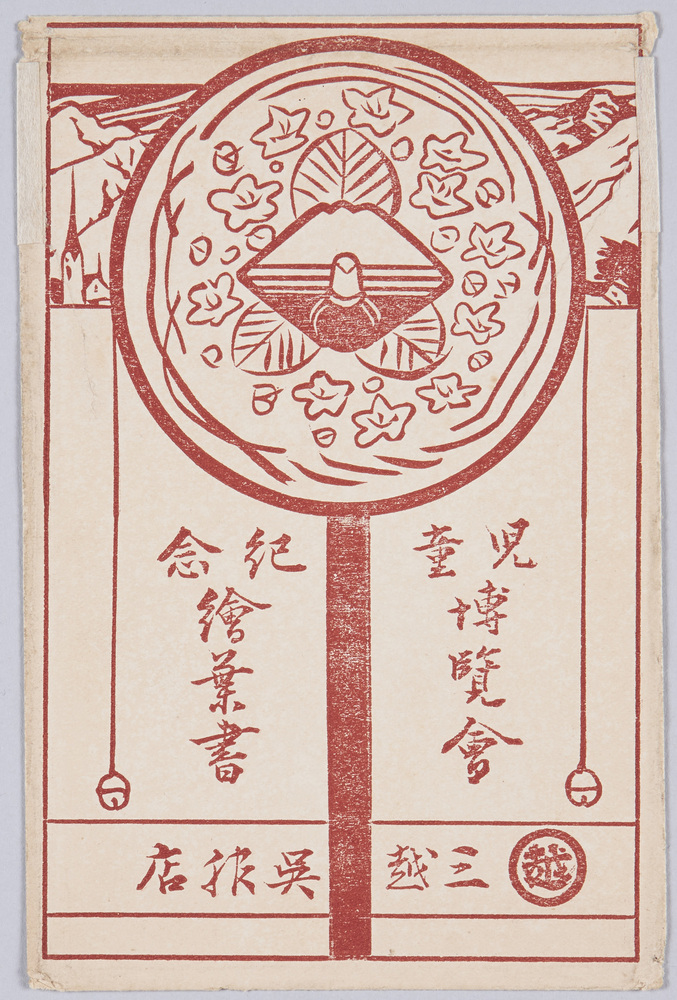 児童博覧會
紀念繪葉書
越
三越呉服店